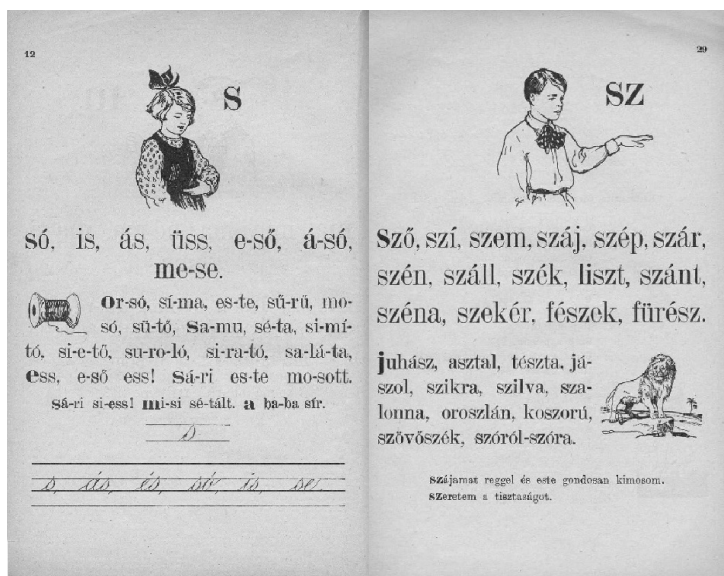 12
s
só, is, ás, üss, e-ső, á-só,
me-se.
Or-só, sí-ma, es-te, sű-rű, mo-
só, sü-tő, Sa-mu, sé-ta, si-mí-
tó, si-e-tő, su-ro-ló, si-ra-tó, sa-lá-ta,
ess, e-ső ess! Sá-ri es-te mo-sott.
Sá-ri si-ess! mi-si sé-tált. a ba-ba sír.
s
s, ás, és, só, is, se.
29
sz
Sző, szí, szem, száj, szép, szár,
szén, száll, szék, liszt, szánt,
széna, szekér, fészek, fűrész.
juhász, asztal, tészta, já-
szol, szikra, szilva, sza-
lonna, oroszlán, koszorú,
szövőszék, szóról-szóra.
szájamat reggel és este gondosan kimosom.
szeretem a tisztaságot.